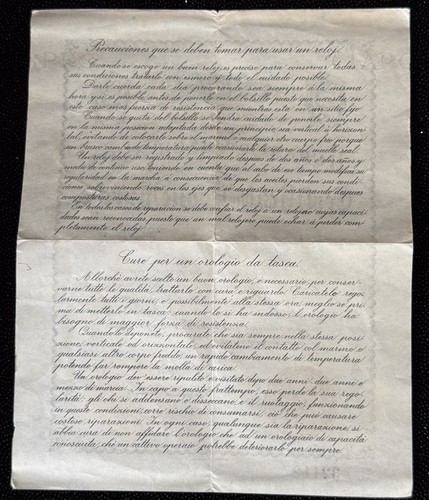 Precauciones que se deben tomar para usar un reloj.
Cuando se escogo un buen reloj, es preciso para conservar todas
sus condiciones tratarlo con esmero y todo el cuidado posible.
Darle cuerda cada dia procurando sea siempre á la misma
hora y si es posible, antes de ponerlo en el bolsillo puesto que necesita en
este caso mas fuerza de resistencia que mientras esta en un sitio fijo.
Cuando se quita del bolsillo se tendra cuidado de ponerlo siempre
en la misma posicion adoptada desde un principio sea vertical ú horizon-
tal, evitando de colocarlo sobre el marmol o cualquier otro cuerpo frio porque
un brusco cambio de temperatura puede ocasionarle la rotura del muelle real.
Un reloj debe ser registrado y limpiado despues de dos años o dos años y
medio de continuo uso teniendo en cuenta que al cabo de ese tiempo modifica su
regularidad en la marcha a consecuencia de que los aceites pierden sus condi-
ciones sobreviniendo roces en los ejes que se desgastan y ocasionando despues
composturas costosas.
En todos los casos de reparación se debe confiar el reloj a un relojero cuyas capaci-
dades sean reconocidas puesto que un mal relojero puede echar á perder com-
pletamente el reloj.
Cure per un orologio da tasca.
Allorchè avrete scelto un buon orologio, è necessario, per conser-
varne tutte le qualità, trattarlo con cura e riguardi. Caricatelo rego-
larmente tutti i giorni, e possibilmente alla stessa ora, meglio se pri-
ma di metterlo in tasca: quando lo si ha indosso, l'orologio ha
bisogno di maggior forza di resistenza.
Quando lo deponete, procurate che sia sempre nella stessa posi-
zione, verticale od orizzontale, ed evitatene il contatto col marmo o
qualsiasi altro corpo freddo: un rapido cambiamento di temperatura
potendo far rompere la molla di carica.
Un orologio dev'essere ripulito e visitato dopo due anni o due anni e
mezzo di marcia. In capo a questo frattempo, esso perde la sua rego-
larità: gli oli si addensano e disseccano, e il ruotaggio, funzionando
in queste condizioni, corre rischio di consumarsi, ciò che può causare
costose riparazioni. In ogni caso, qualunque sia la riparazione, si
abbia cura di non affidare l'orologio che ad un orologiaio di capacità
conosciuta, chè un cattivo operaio potrebbe deteriorarlo per sempre.